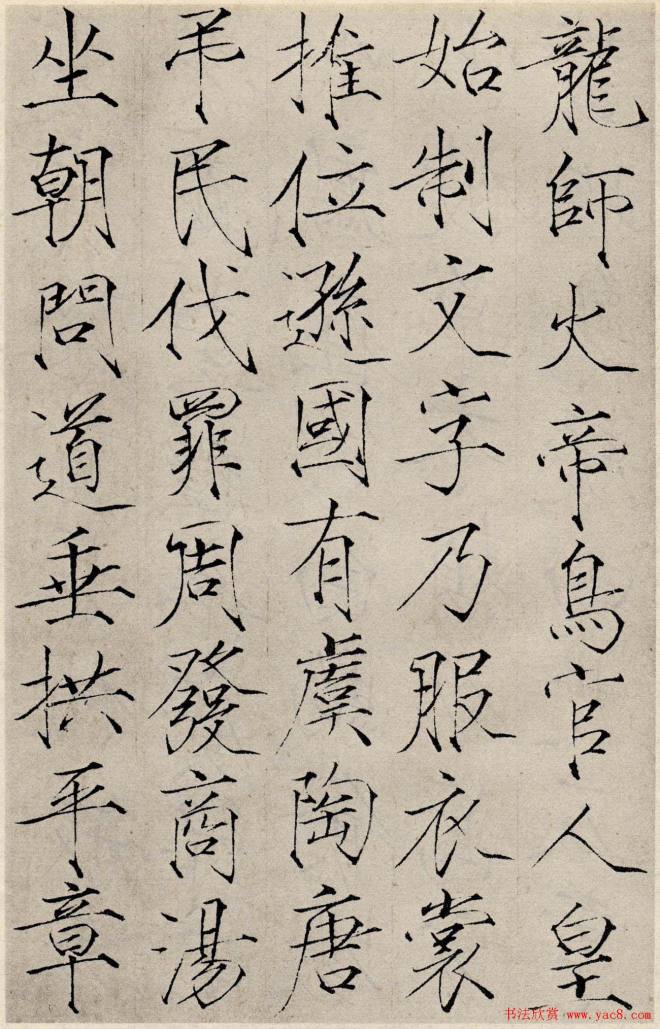 龍師火帝鳥官人皇
始制文字乃服衣裳
推位遜國有虞陶唐
弔民伐罪周發商湯
坐朝問道垂拱平章
书法欣赏 www.yac8.com